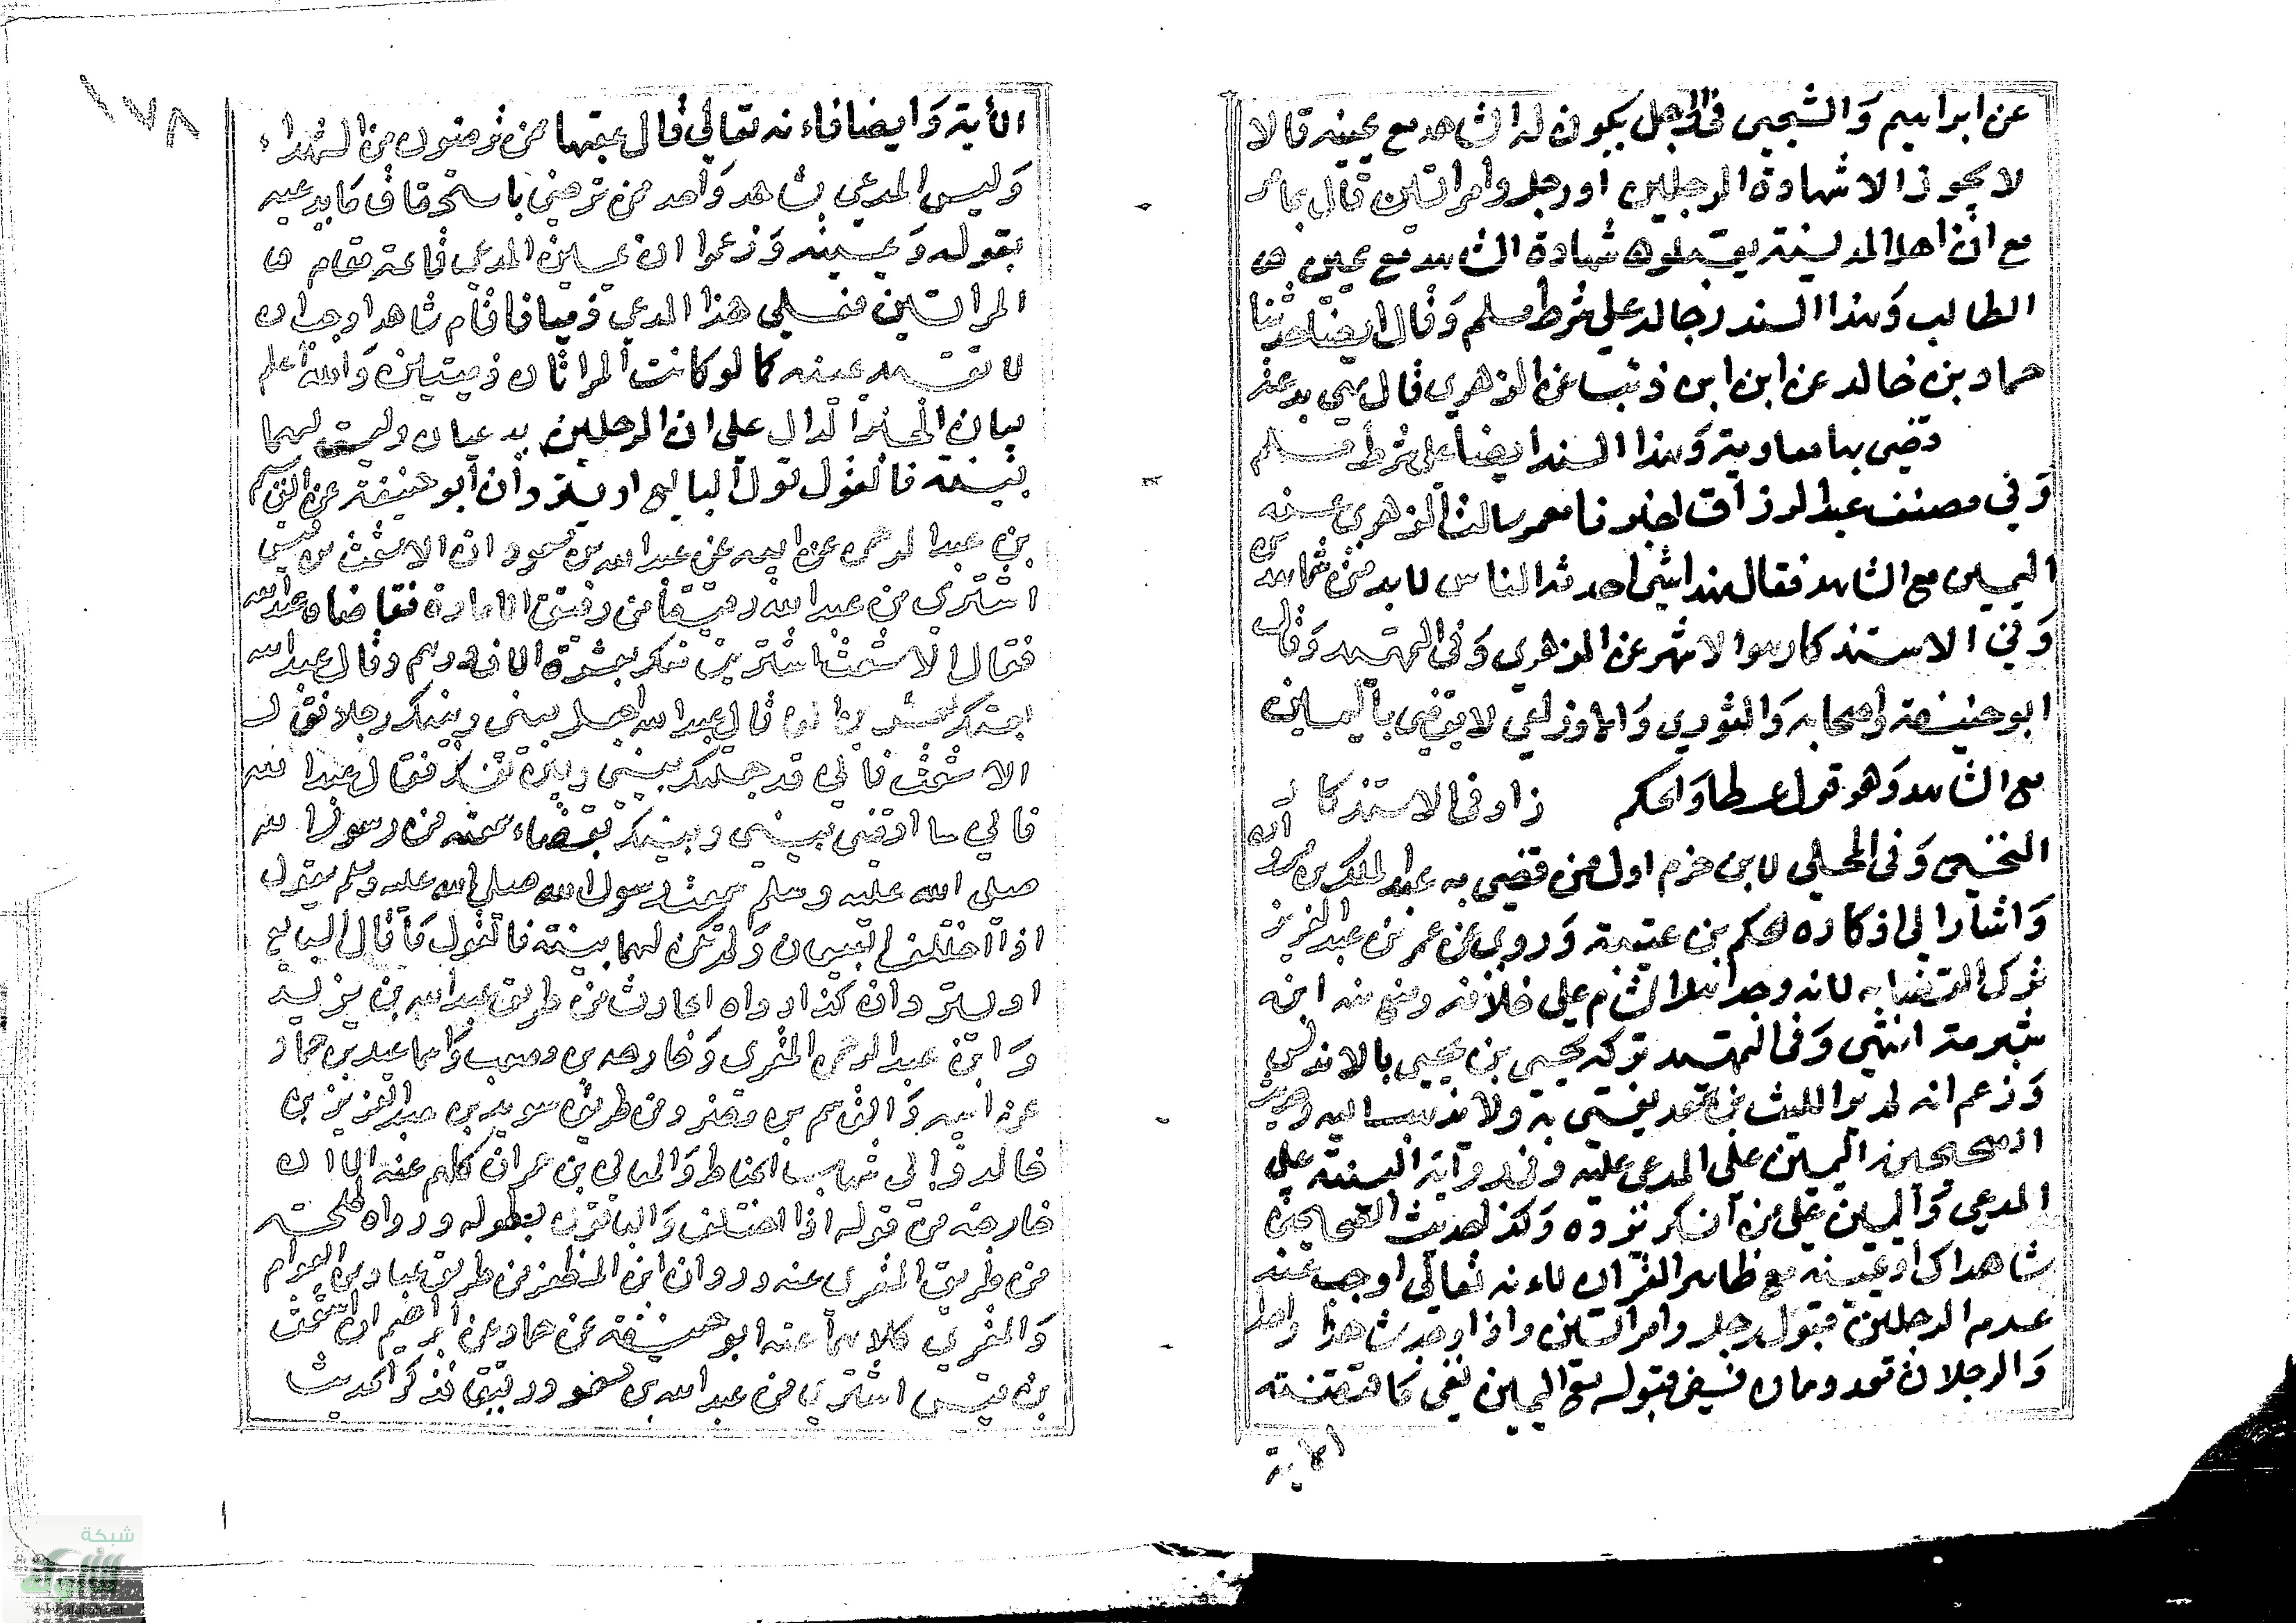 عن ابراهيم والشعبى فى الرجل يكون له الشاهد مع يمينه قالا
لا يجوز الا شهادة الرجلين او رجل وامراتين قال عامر
مع ان اهل المدينة يقبلون شهادة الشاهد مع يمين
الطالب وهذا السند رجاله على شرط مسلم وقال ايضا حدثنا
حماد بن خالد عن ابن ابى ذئب عن الزهرى قال هى بدعة
قضى بها معاوية وهذا السند ايضا على شرط مسلم
وفى مصنف عبد الرزاق اخبرنا معمر سالت الزهرى عن
اليمين مع الشاهد فقال هذا شئ احدثه الناس لابد من شاهدين
وفى الاستذكار هو الاشهر عن الزهرى وفى التمهيد وقال
ابو حنيفة واصحابه والثورى والاوزاعى لا يقضى باليمين
مع الشاهد وهو قول عطا والحكم زاد فى الاستذكار
النخعى وفى المحلى لابن حزم اول من قضى به عبد الملك بن مروان
واشار الى انكاره الحكم بن عتيبة وروى عن عمر بن عبد العزيز
ترك القضا به لانه وجد اهل الشام على خلافه ومنع منه ابن
شبرمة انتهى وفى التمهيد تركه يحيى بن يحيى بالاندلس
وزعم انه لم ير الليث بن سعد يفتى به ولا يذهب اليه وحديث
الصحيحين اليمين على المدعى عليه وفى رواية البينة على
المدعى واليمين على من انكر يرده وكذا حديث الصحيحين
شاهداك او يمينه مع ظاهر القران لانه تعالى اوجب عند
عدم الرجلين قبول رجل وامراتين واذا وجد شاهدا واحدا
والرجلان معدومان فسفى قبوله مع اليمين نفى ما اقتضته
الاية
١٧٨
الأية وايضا فانه تعالى قال عقبها ممن ترضون من الشهداء
وليس المدعى بشاهد واحد ممن ترضى باستحقاق ما يدعيه
بقوله ويمينه وزعموا ان يمين المدعى قائمة مقام
المراتين فعلى هذا المدعى ذميا فاقام شاهدا وجب ان
لا تقبل يمينه كما لو كانت المراتان ذميتين والله اعلم
بيان الخبر الدال على ان الرجلين يدعيان وليست لهما
بينة فالقول قول البائع او يترادان ابو حنيفة عن القاسم
بن عبد الرحمن عن ابيه عن عبد الله بن مسعود ان الاشعث بن قيس
اشترى من عبد الله رقيقا من رقيق الامارة فتقاضاه عبد الله
فقال الاشعث اشتريت منك بعشرة الاف درهم وقال عبد الله
بعتك بعشرين الفا قال عبد الله اجعل بينى وبينك رجلا فقال
الاشعث فانى قد جعلتك بينى وبين نفسك فقال عبد الله
فانى سا اقضى بينى وبينك بقضاء سمعته من رسول الله
صلى الله عليه وسلم سمعت رسول الله صلى الله عليه وسلم يقول
اذا اختلف البيعان ولم تكن لهما بينة فالقول ما قال البايع
او يترادان كذا رواه الحارث من طريق عبد الله بن يزيد
وابى عبد الرحمن المقرى وخارجه بن مصعب واسماعيل بن حماد
عن ابيه والقسم بن معن ومن طريق سويد بن عبد العزيز بن
خالد وابى شهاب الحناط والمعافى بن عمران كلهم عنه الا ان
خارجه من قوله اذا اختلف والباقون بطوله ورواه طلحة
من طريق المقرى عنه ورواه ابن المظفر من طريق عباد بن العوام
والمقرى كلاهما عنه ابو حنيفة عن حماد عن ابراهيم ان الاشعث
بن قيس اشترى من عبد الله بن مسعود رقيقا فذكر الحديث
شبكة
الألوكة